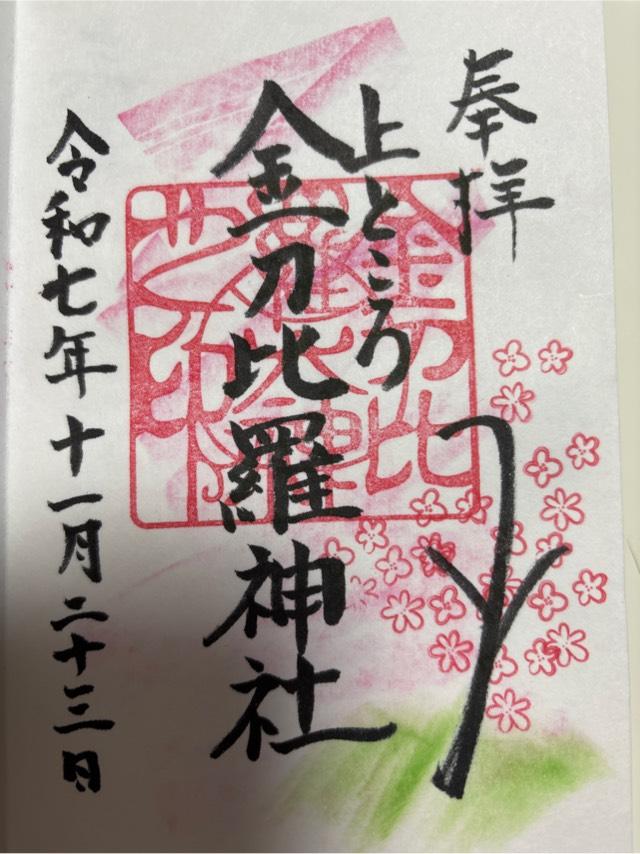 奉拝
上ところ
金刀比羅神社
令和七年十一月二十三日